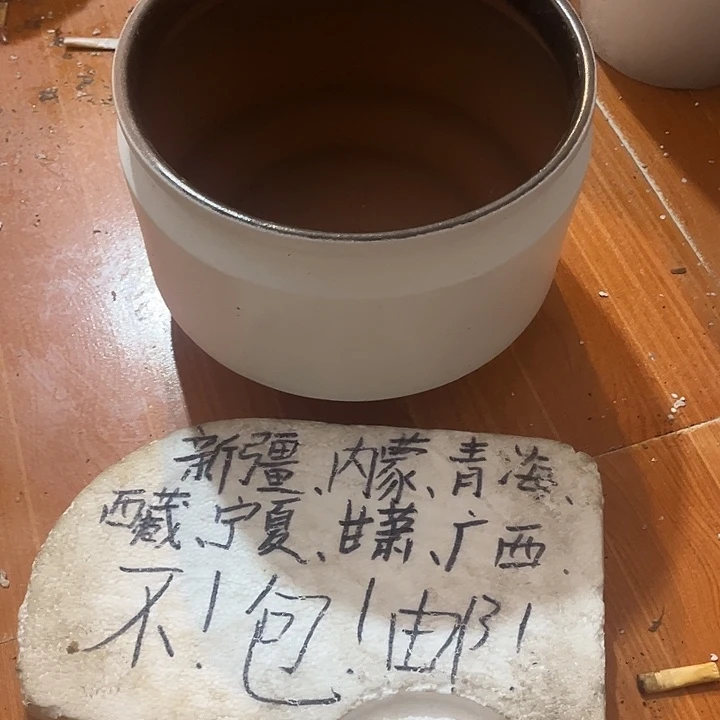 新疆、内蒙、青海、
西藏、宁夏、甘肃、广西.
不!包!由阝!